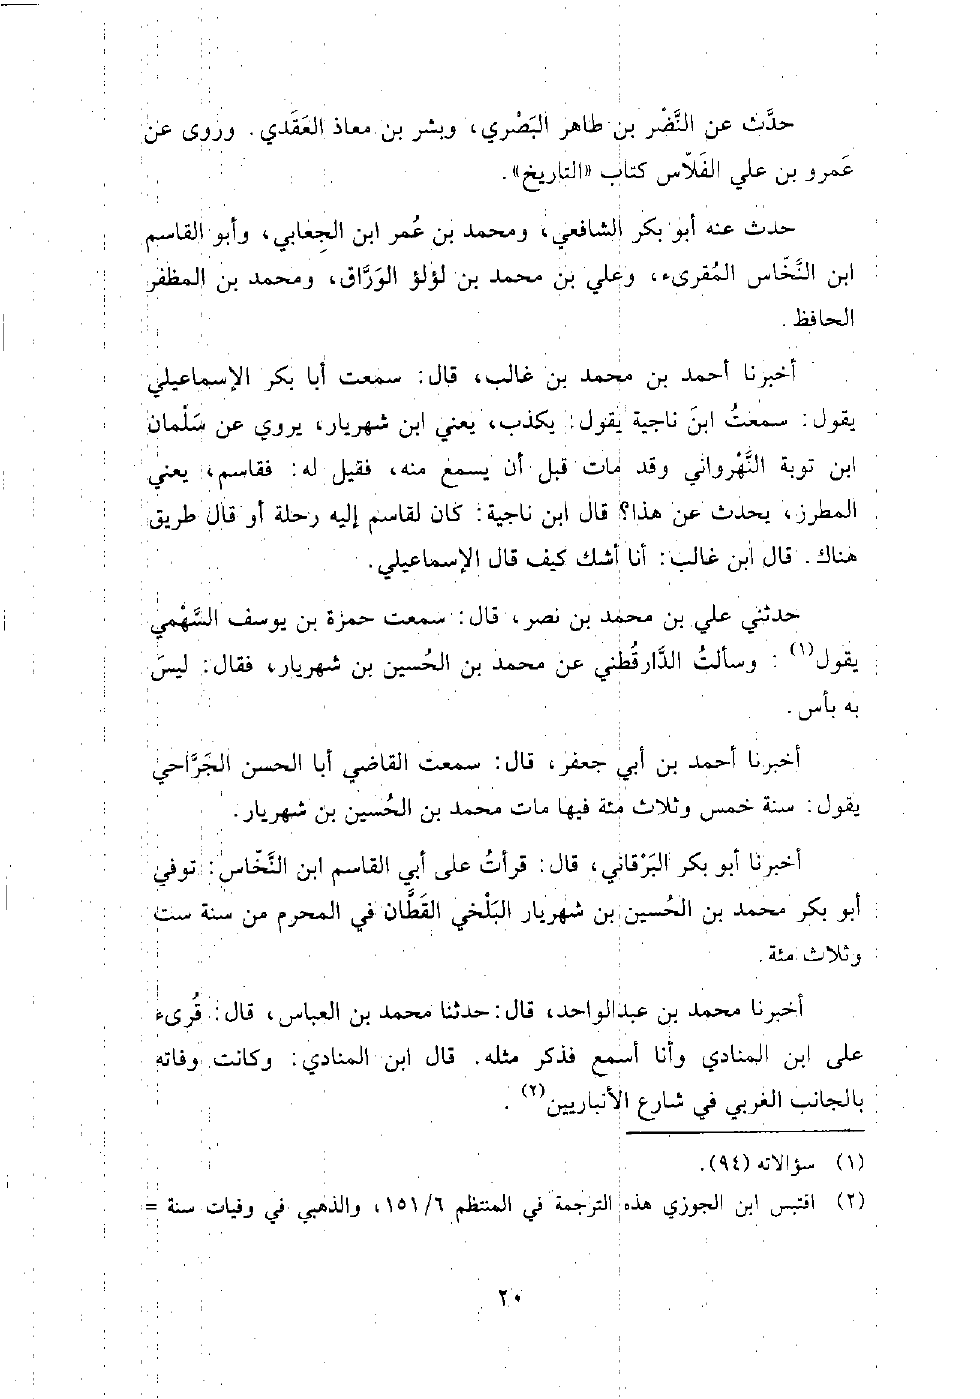 حدَّث عن النَّضْر بن طاهر البَصْري، وبشر بن معاذ العَقَدي. وروى عن
عَمرو بن علي الفَلّاس كتاب «التاريخ».
حدث عنه أبو بكر الشافعي، ومحمد بن عُمر ابن الجِعابي، وأبو القاسم
ابن النَّخّاس المُقرىء، وعلي بن محمد بن لؤلؤ الوَرَّاق، ومحمد بن المظفر
الحافظ.
أخبرنا أحمد بن محمد بن غالب، قال: سمعت أبا بكر الإسماعيلي
يقول: سمعتُ ابنَ ناجية يقول: يكذب، يعني ابن شهريار، يروي عن سَلْمان
ابن توبة النَّهْرواني وقد مات قبل أن يسمع منه، فقيل له: فقاسم، يعني
المطرز، يحدث عن هذا؟ قال ابن ناجية: كان لقاسم إليه رحلة أو قال طريق
هناك. قال ابن غالب: أنا أشك كيف قال الإسماعيلي.
حدثني علي بن محمد بن نصر، قال: سمعت حمزة بن يوسف السَّهْمي
يقول(١): وسألتُ الدَّارقُطني عن محمد بن الحُسين بن شهريار، فقال: ليسَ
به بأس.
أخبرنا أحمد بن أبي جعفر، قال: سمعت القاضي أبا الحسن الجَرَّاحي
يقول: سنة خمس وثلاث مئة فيها مات محمد بن الحُسين بن شهريار.
أخبرنا أبو بكر البَرْقاني، قال: قرأتُ على أبي القاسم ابن النَّخّاس: توفي
أبو بكر محمد بن الحُسين بن شهريار البَلْخي القَطَّان في المحرم من سنة ست
وثلاث مئة.
أخبرنا محمد بن عبدالواحد، قال: حدثنا محمد بن العباس، قال: قُرىء
على ابن المنادي وأنا أسمع فذكر مثله. قال ابن المنادي: وكانت وفاته
بالجانب الغربي في شارع الأنباريين(٢).
(١) سؤالاته (٩٤).
(٢) اقتبس ابن الجوزي هذه الترجمة في المنتظم ٦/ ١٥١، والذهبي في وفيات سنة =
٢٠